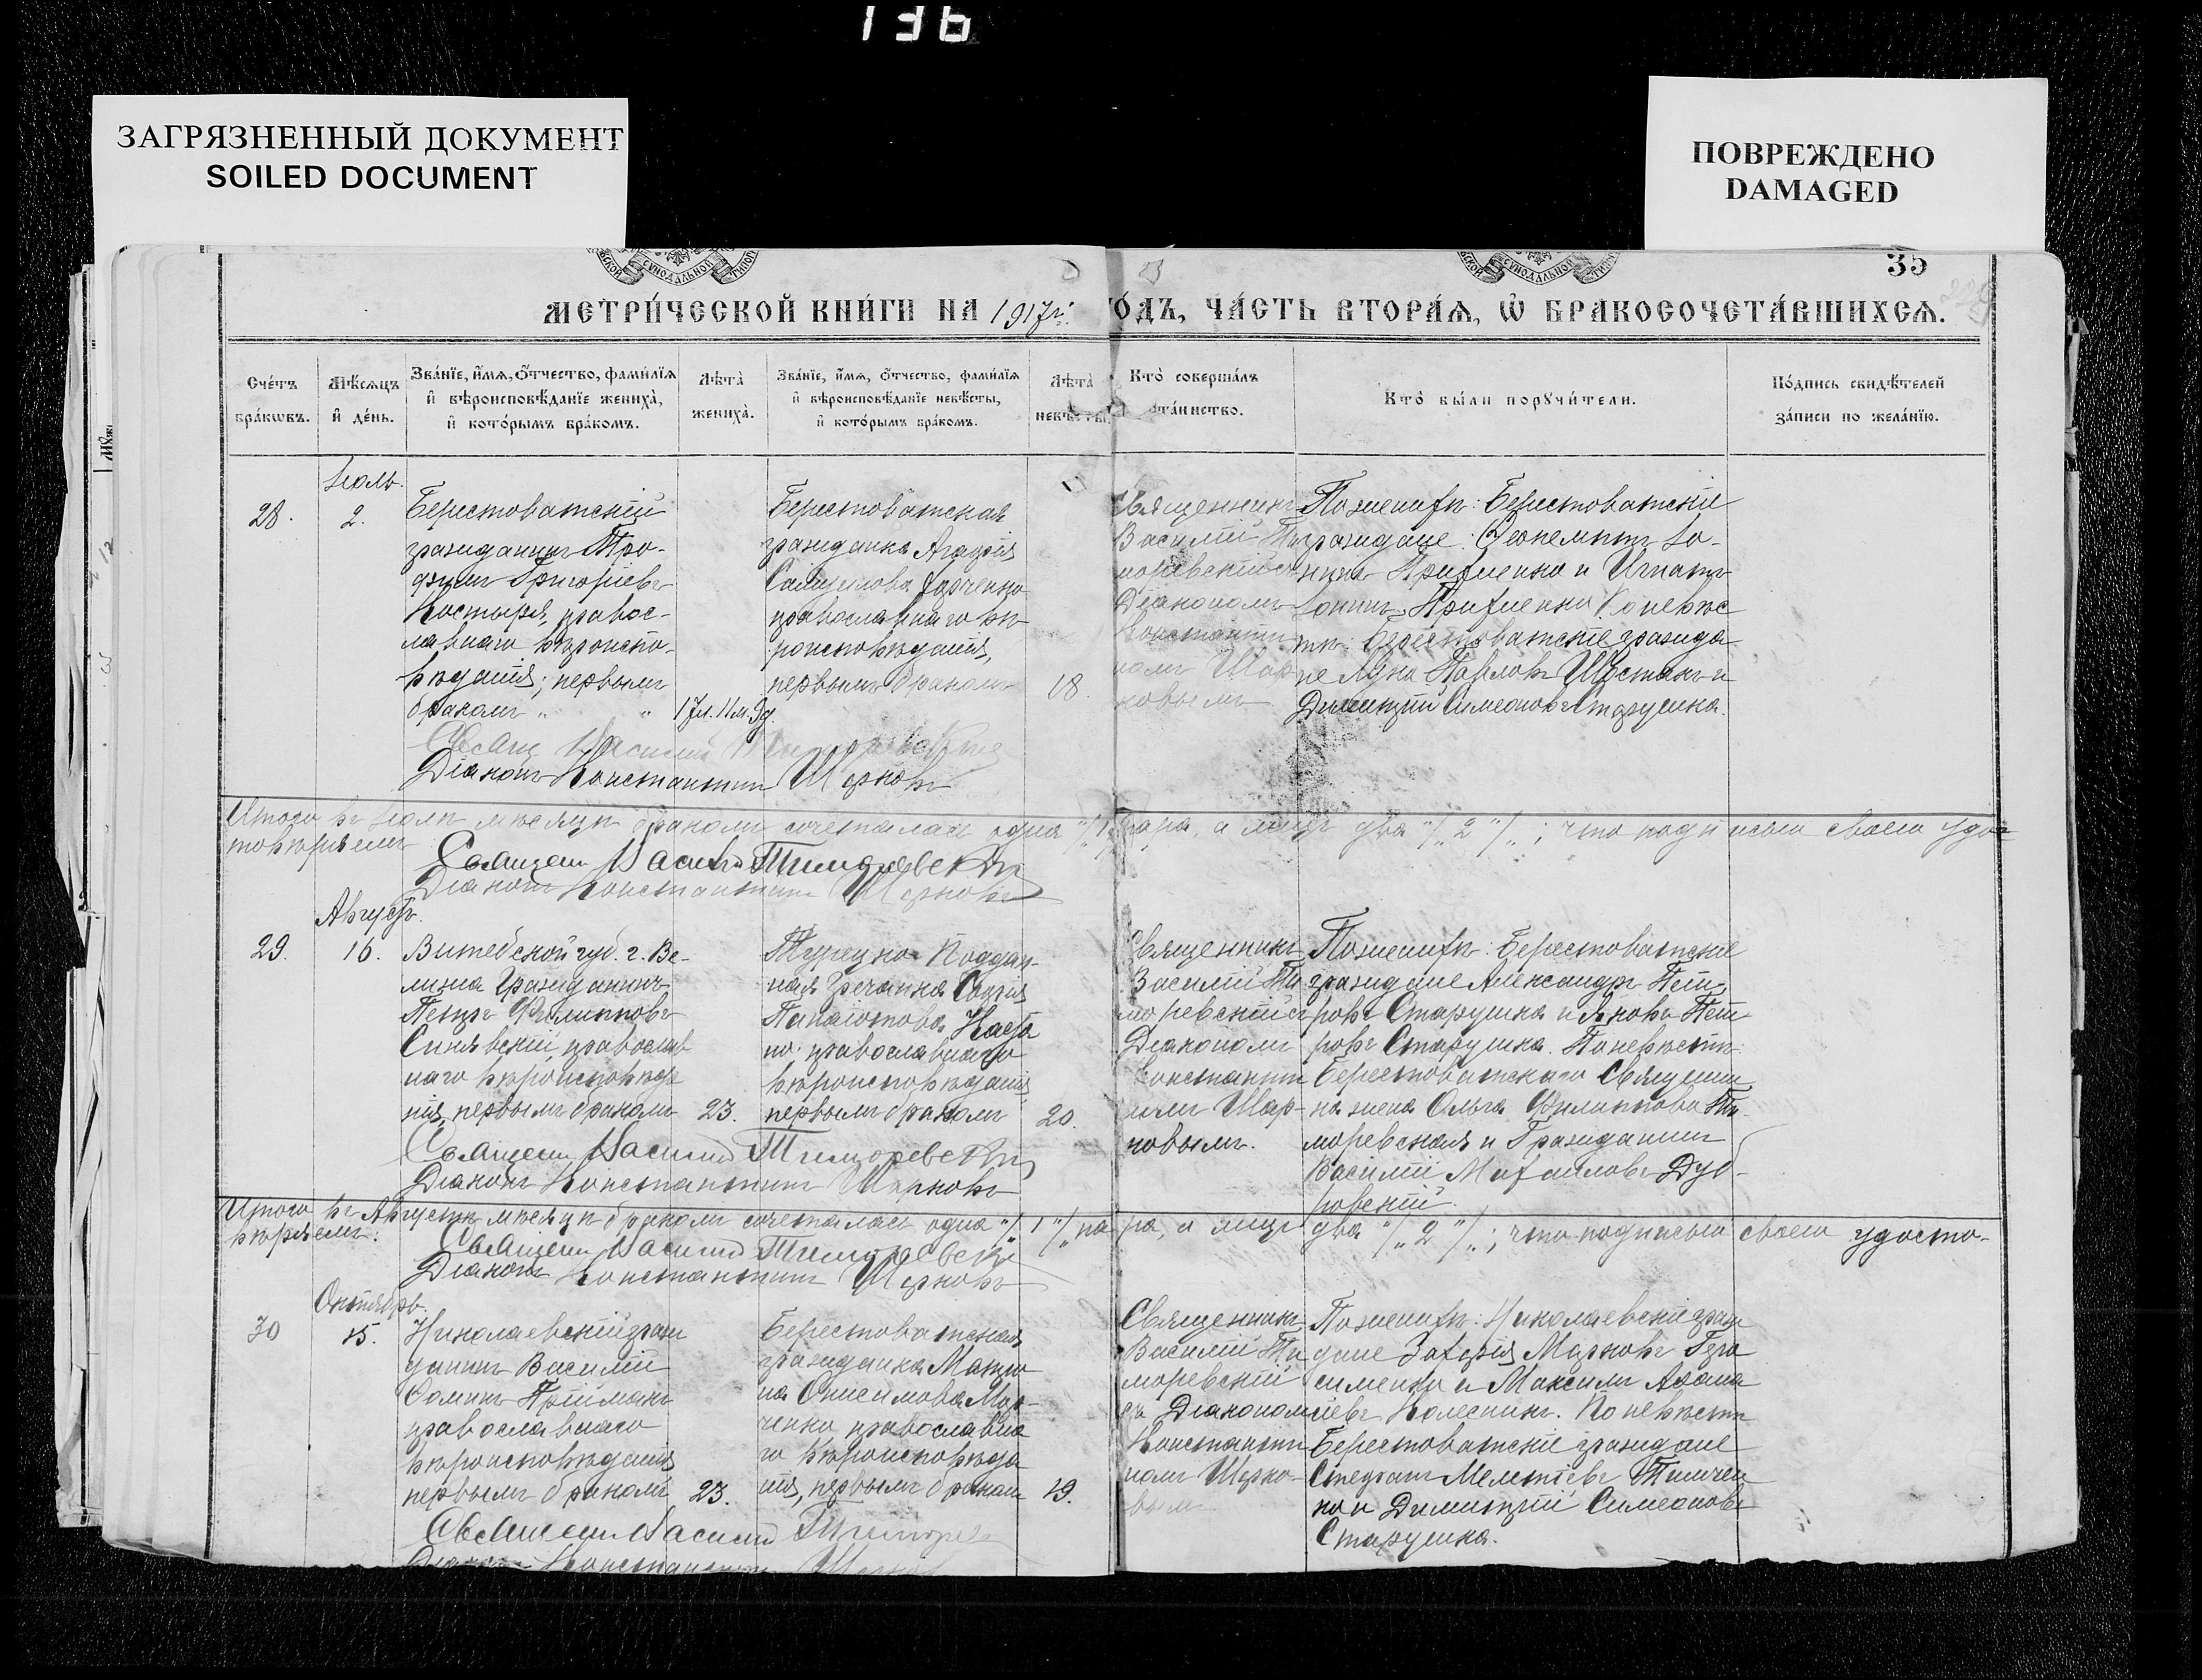 136
ЗАГРЯЗНЕННЫЙ ДОКУМЕНТ
SOILED DOCUMENT
ПОВРЕЖДЕНО
DAMAGED
СУНОДАЛЬНОЙ
СУНОДАЛЬНОЙ
35
МЕТРИ́ЧЕСКОЙ КНИ́ГИ НА 1917 г. ГО́ДЪ, ЧА́СТЬ ВТОРА́Ѧ, Ѡ҆ БРАКОСОЧЕТА́ВШИХСѦ.
Сче́тъ бра́кѡвъ.
Мѣ́сѧцъ и҆ де́нь.
Зва́нїе, и҆́мѧ, ѻ҆́тчество, фами́лїѧ
и҆ вѣроисповѣ́данїе жениха̀,
и҆ кото́рымъ бра́комъ.
Лѣта̀ жениха̀.
Зва́нїе, и҆́мѧ, ѻ҆́тчество, фами́лїѧ
и҆ вѣроисповѣ́данїе невѣ́сты,
и҆ кото́рымъ бра́комъ.
Лѣта̀ невѣ́сты.
Кто̀ соверша́лъ
та́инство.
Кто̀ бы́ли порꙋчи́тели.
По́дпись свидѣ́телей
за́писи по жела́нїю.
Іюль.
28.
2.
Берестоватскій
гражданинъ Тро-
фимъ Григоріевъ
Костыря, правос-
лавнаго вѣроиспо-
вѣданія; первымъ
бракомъ " "
17 л. 11 м. 9 д.
Берестоватская
гражданка Агафія
православнаго вѣ-
роисповѣданія,
первымъ бракомъ
18.
Священникъ
Василій Ти-
моревскій съ
Діакономъ
Константи-
номъ Шар-
ковымъ
По женихѣ: Берестоватскіе
граждане: Феонемптъ Іо-
нинъ Прихненко и Игнатъ
Іонинъ Прихненко. По невѣс
тѣ: Берестоватскіе гражда
не Лука Павловъ Шостакъ и
Димитрій Симеоновъ Старушка.
Свящ Василій Тиморевскій
Діаконъ Константинъ Шарковъ
Итого въ Іюлѣ мѣсяцѣ бракомъ сочеталась одна "/"1"/" пара, а лицъ два "/"2"/"; что подписью своею удос
товѣряемъ
Священ Василій Тиморевскій
Діаконъ Константинъ Шарковъ
Августъ.
29.
16.
Витебской губ. г. Ве-
лижа Гражданинъ
Петръ Филипповъ
Синявскій, православ
наго вѣроисповѣда
нія, первымъ бракомъ
23.
Турецко-Поддан-
ная Гречанка Софія
Панаіотова
православнаго
вѣроисповѣданія
первымъ бракомъ
20.
Священникъ
Василій Ти
моревскій съ
Діакономъ
Константи
номъ Шар-
ковымъ.
По женихѣ: Берестоватскіе
граждане Александръ Пет-
ровъ Старушка и Яковъ Пет
ровъ Старушка. По невѣстѣ:
Берестоватскаго Священни
ка жена Ольга Филиппова Ти-
моревская и Гражданинъ
Василій Михаиловъ Дуб-
ровскій.
Священ Василій Тиморевскій
Діаконъ Константинъ Шарковъ
Итого въ Августѣ мѣсяцѣ бракомъ сочеталась одна "/"1"/" пара, а лицъ два "/"2"/"; что подписью своею удосто-
вѣряемъ:
Священ Василій Тиморевскій
Діаконъ Константинъ Шарковъ
Октябрь.
30
15.
Николаевскій граж
данинъ Василій
Фоминъ Пріймакъ
православнаго
вѣроисповѣданія
первымъ бракомъ
23.
Берестоватская
гражданка Матро
на Онисимова Мар-
ченко, православна
го вѣроисповѣда
нія, первымъ бракомъ
19.
Священникъ
Василій Ти
моревскій
съ Діакономъ
Константи
номъ Шарко-
вымъ
По женихѣ: Николаевскіе граж
дане Захарія Марковъ Гера
сименко и Максимъ Афана
сіевъ Колесникъ. По невѣстѣ
Берестоватскіе граждане
Стефанъ Мелетіевъ Тимчен
ко и Димитрій Симеоновъ
Старушка.
Священ Василій Тиморев
Діаконъ Константинъ Шарков